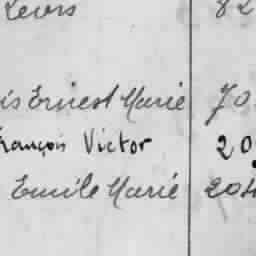 Leurs 82
is Ernest Marie 70
François Victor 20
Emile Marie 204